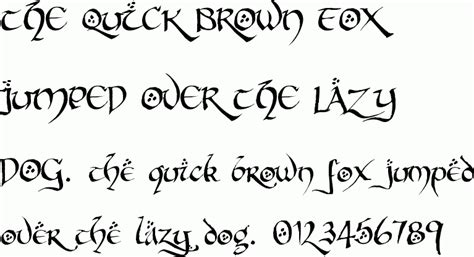 THE QUICK BROWN FOX
JUMPED OVER THE LAZY
DOG. the quick brown fox jumped
over the lazy dog. 0123456789